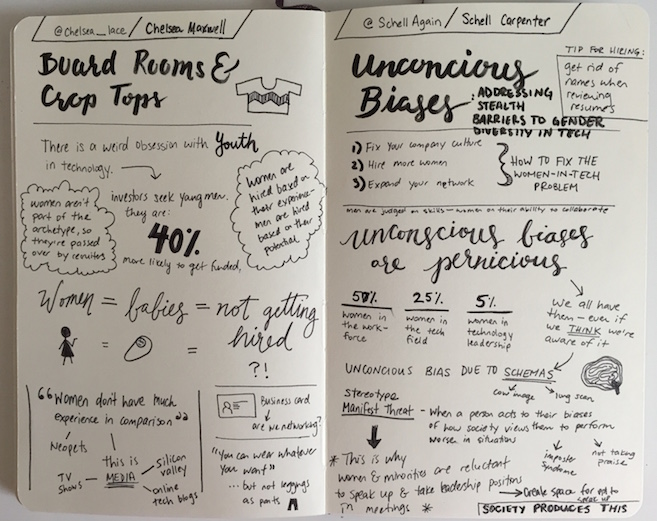 @Chelsea_lace / Chelsea Maxwell
Board Rooms &
Crop Tops
There is a weird obsession with Youth
in technology.
investors seek young men.
they are:
40%
more likely to get funded,
women aren't
part of the
archetype, so
they're passed
over by recruiters
Women are
hired based on
their experience-
men are hired
based on their
potential
Women = babies = not getting
hired
= =
?!
"Women don't have much
experience in comparison"
Neopets
TV
Shows
this is
MEDIA
silicon
valley
online
tech blogs
Business card
are we networking?
"You can wear whatever
you want"
... but not leggings
as pants
@SchellAgain / Schell Carpenter
Unconcious
Biases: ADDRESSING
STEALTH
BARRIERS TO GENDER
DIVERSITY IN TECH
TIP FOR HIRING:
get rid of
names when
reviewing
resumes
1) Fix your company culture
2) Hire more women
3) Expand your network
HOW TO FIX THE
WOMEN-IN-TECH
PROBLEM
men are judged on skills — women on their ability to collaborate
unconscious biases
are pernicious
50%
women in
the work-
force
25%
women in
the tech
field
5%
women in
technology
leadership
We all have
them — even if
we THINK we're
aware of it
UNCONCIOUS BIAS DUE TO SCHEMAS
cow image
lung scan
Stereotype
Manifest Threat - When a person acts to their biases
of how society views them to perform
worse in situations
imposter
syndrome
not taking
praise
* This is why
women & minorities are reluctant
to speak up & take leadership positions
in meetings *
Create space for ppl to
speak up
SOCIETY PRODUCES THIS